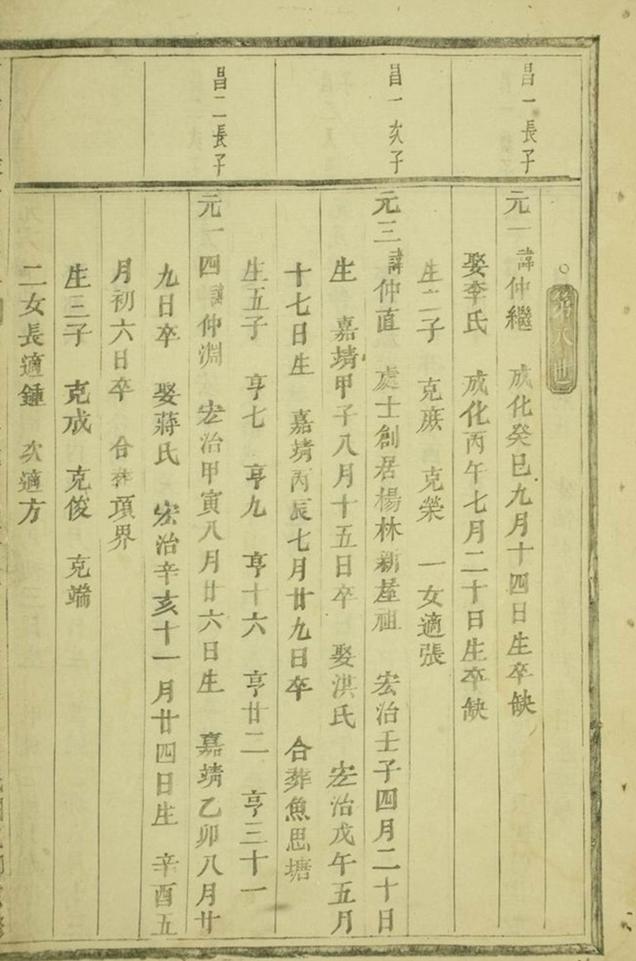 第八世
昌一長子
元一 諱仲繼 成化癸巳九月十四日生卒缺
娶李氏 成化丙午七月二十日生卒缺
生二子 克庻 克榮 一女適張
昌一次子
元三 諱仲直 處士創居楊林新屋祖 宏治壬子四月二十日
生 嘉靖甲子八月十五日卒 娶洪氏 宏治戊午五月
十七日生 嘉靖丙辰七月廿九日卒 合葬魚思塘
生五子 亨七 亨九 亨十六 亨廿二 亨三十一
昌二長子
元一四 諱仲淵 宏治甲寅八月廿六日生 嘉靖乙卯八月廿
九日卒 娶蔣氏 宏治辛亥十一月廿四日生 辛酉五
月初六日卒 合葬項界
生三子 克成 克俊 克端
二女長適鍾 次適方